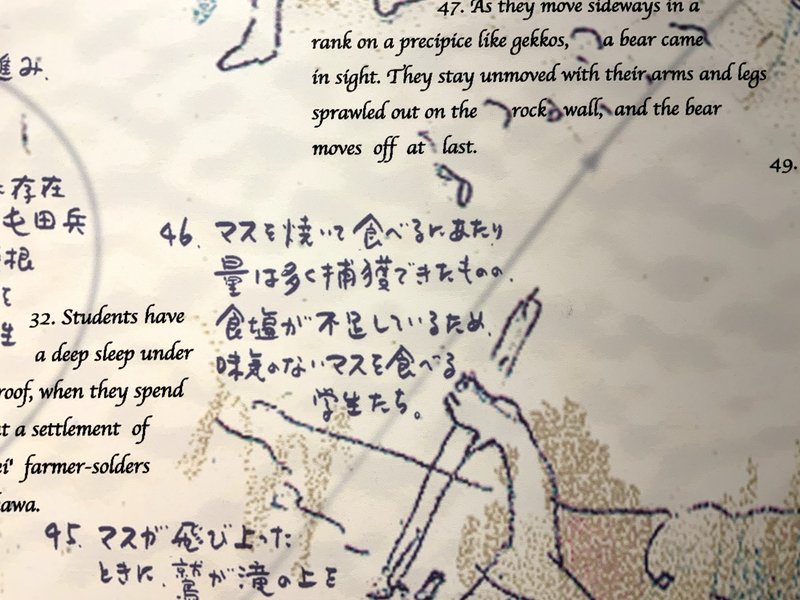 47. As they move sideways in a
rank on a precipice like gekkos, a bear came
in sight. They stay unmoved with their arms and legs
sprawled out on the rock wall, and the bear
moves off at last.
49.
進み、
存在
屯田兵
根
を
生
46. マスを焼いて食べるにあたり
量は多く捕獲できたものの、
食塩が不足しているため、
味気のないマスを食べる
学生たち。
32. Students have
a deep sleep under
roof, when they spend
at a settlement of
ei' farmer-solders
awa.
45. マスが飛び上った
ときに、鷲が滝の上を